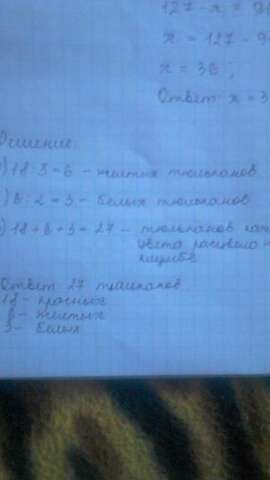 127 - x = 91
x = 127 - 9
x = 36;
Ответ: x = 3
Решение:
) 18:3=6 - желтых тюльпанов
) 6:2=3 - белых тюльпанов
) 18+6+3=27 - тюльпанов
цвета расцвело
клумбе
Ответ 27 тюльпанов
18 - красных
6 - желтых
3 - белых